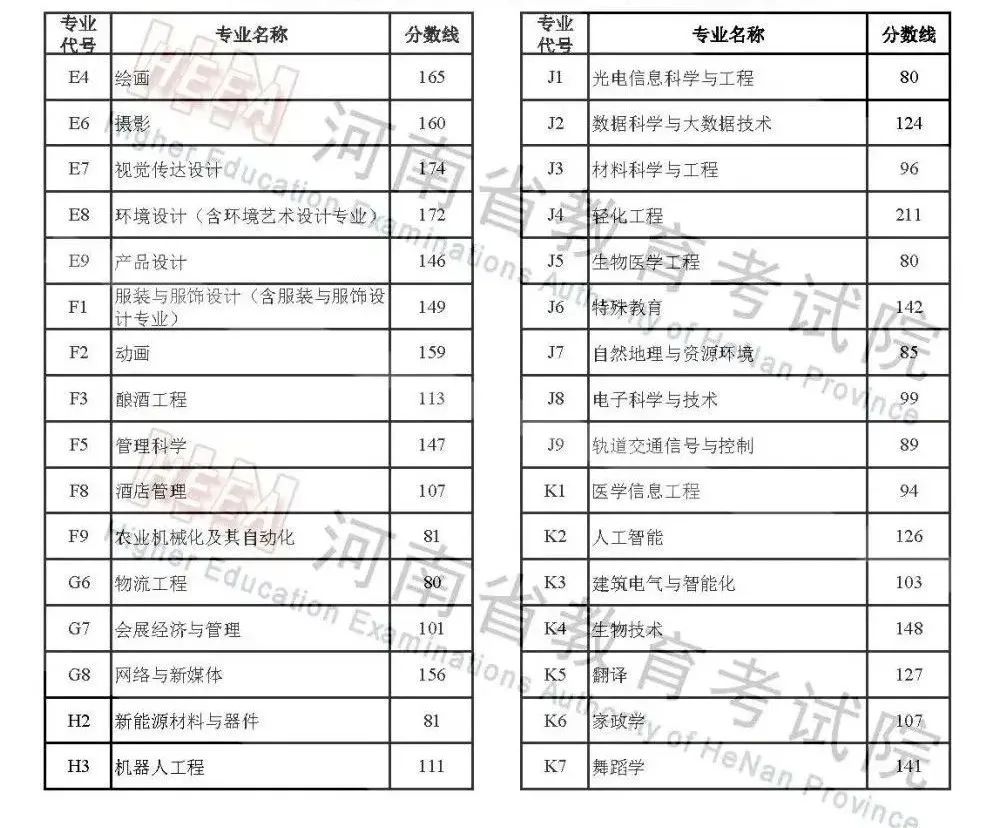 专业代号 专业名称 分数线
E4 绘画 165
E6 摄影 160
E7 视觉传达设计 174
E8 环境设计（含环境艺术设计专业） 172
E9 产品设计 146
F1 服装与服饰设计（含服装与服饰设计专业） 149
F2 动画 159
F3 酿酒工程 113
F5 管理科学 147
F8 酒店管理 107
F9 农业机械化及其自动化 81
G6 物流工程 80
G7 会展经济与管理 101
G8 网络与新媒体 156
H2 新能源材料与器件 81
H3 机器人工程 111
专业代号 专业名称 分数线
J1 光电信息科学与工程 80
J2 数据科学与大数据技术 124
J3 材料科学与工程 96
J4 轻化工程 211
J5 生物医学工程 80
J6 特殊教育 142
J7 自然地理与资源环境 85
J8 电子科学与技术 99
J9 轨道交通信号与控制 89
K1 医学信息工程 94
K2 人工智能 126
K3 建筑电气与智能化 103
K4 生物技术 148
K5 翻译 127
K6 家政学 107
K7 舞蹈学 141
HEEA 河南省教育考试院
Higher Education Examinations Authority of HeNan Province
HEEA 河南省教育考试院
Higher Education Examinations Authority of HeNan Province